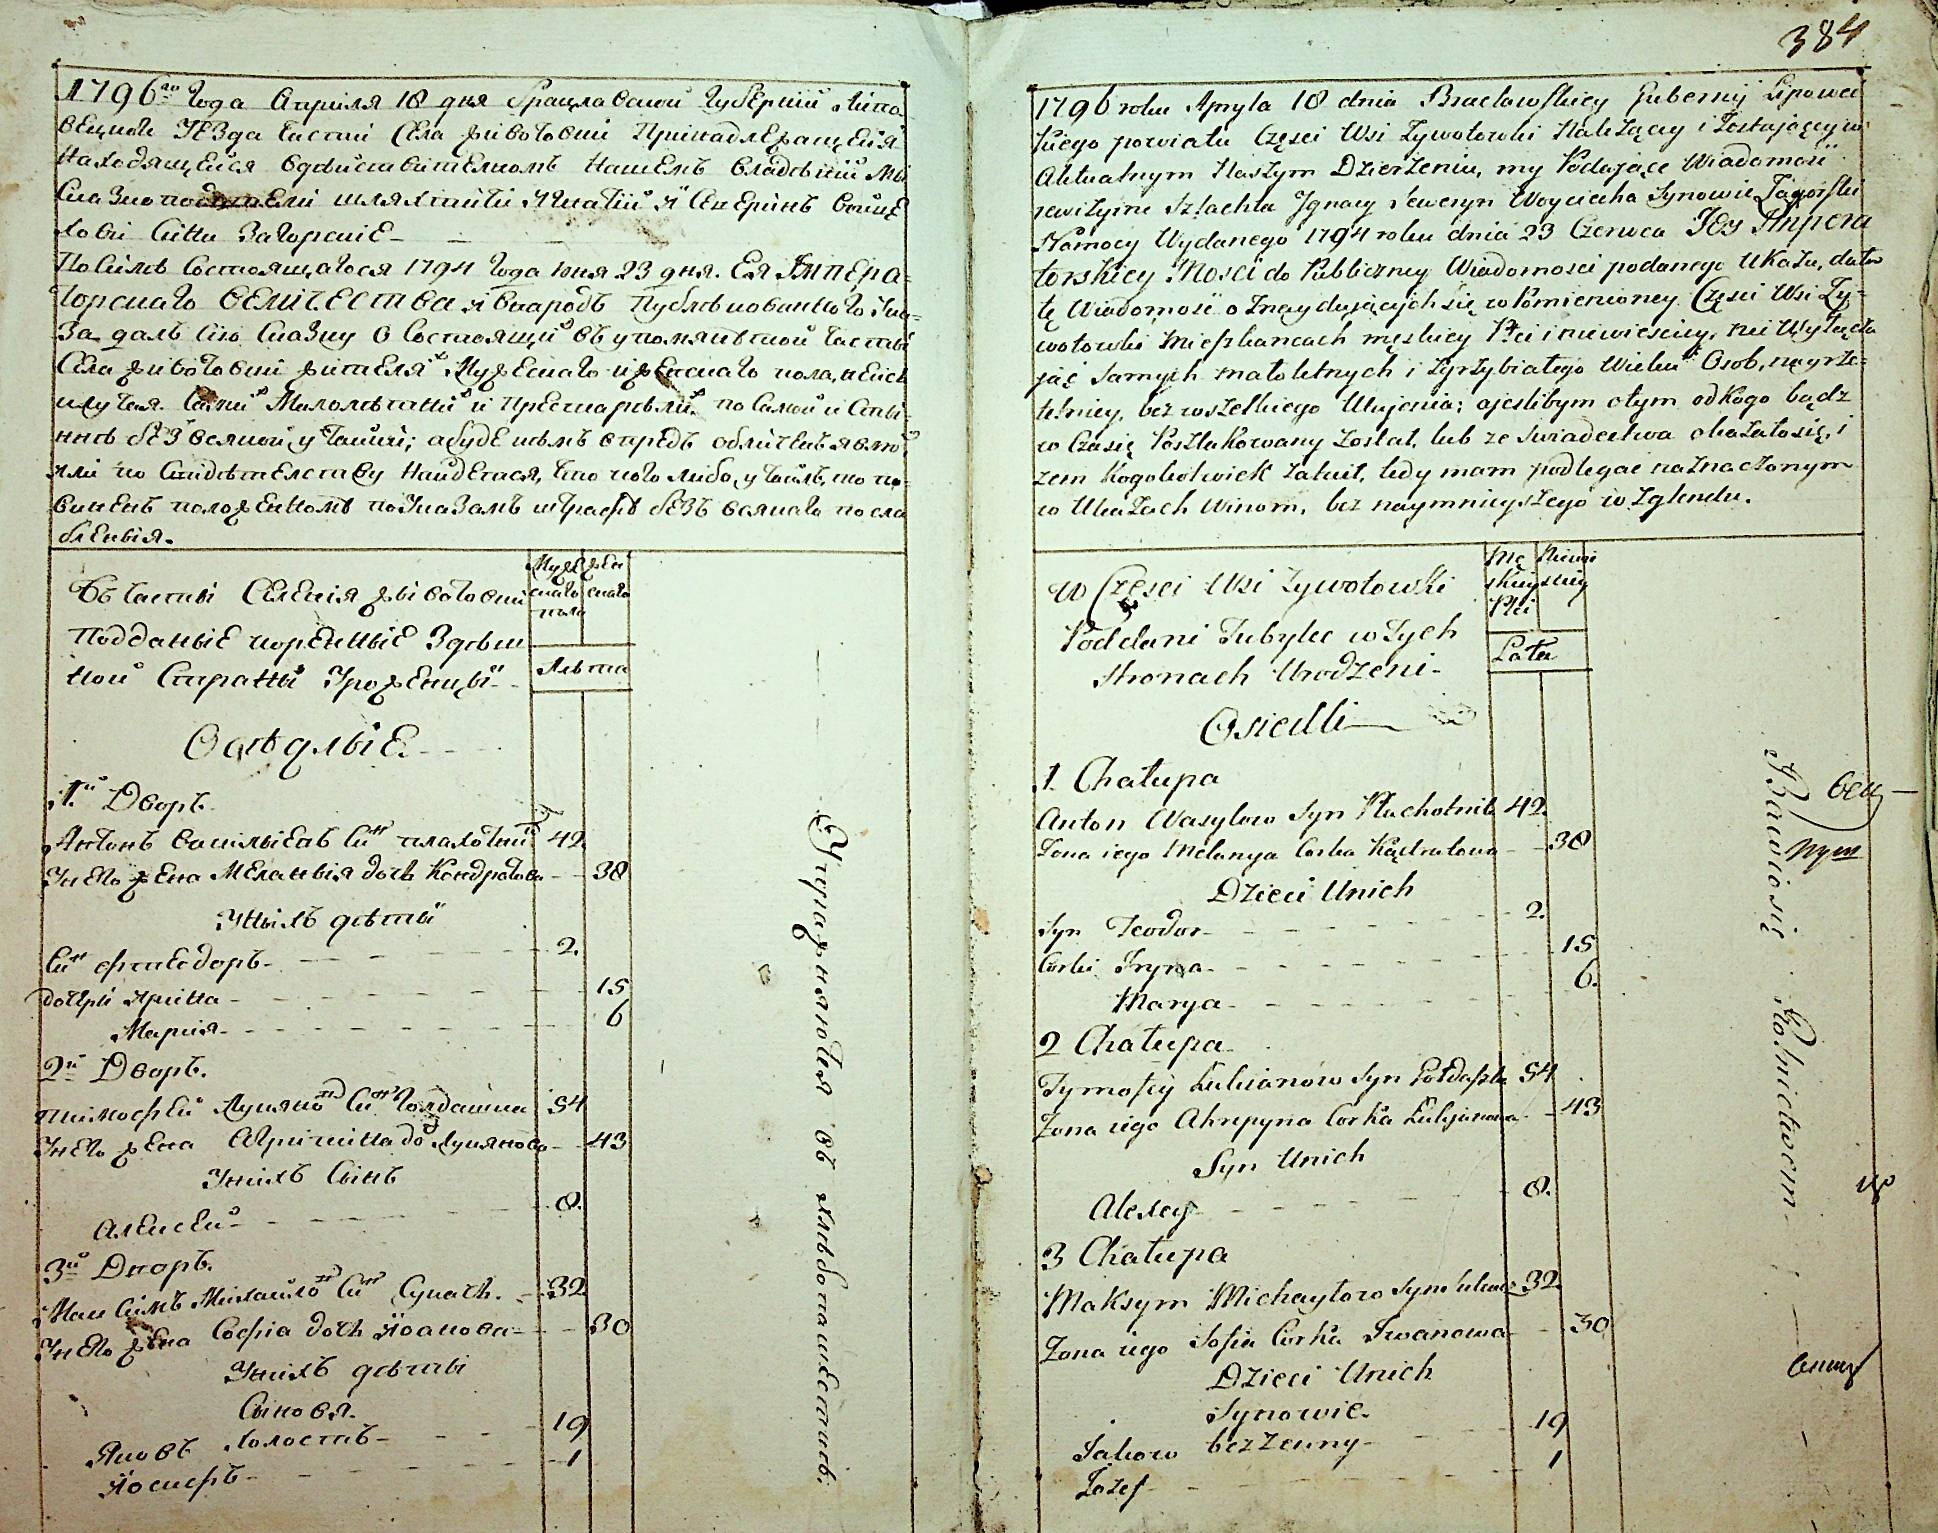 1796го года Априля 18 дня Брацлавской губернии Липо-
вецкого уезда части села Животовки принадлежащей и
находящейся в действителномъ нашемъ владении мы
шляхтичи Игнатий и Северинъ Войце-
ховы сыны Загорские
По силе состоящагося 1794 года июня 23 дня. Ея Импера-
торскаго Величества и в народъ публикованного ука-
за далъ сию сказку о состоящий въ упомянутой части
села Животовки жителя Мужескаго и женскаго пола, неиск
лучая. самий малолетний и престарелий. по самой истин-
не безъ всякой утайки; а буде кемъ впредь обличенъ явлю
или по свидетелству найдется, что кого либо утаилъ, то по-
виненъ положенномъ по указамъ штрафе безъ всякаго посла
бления.
Въ части селения Животовки
Подданые коренные здеш
ной страны уроженцы
Муже
скаго
пола
жен
скаго
Лѣта
Оседлые.
1й Дворъ.
Антонъ Василиевъ сынъ Плахотни 42.
У него жена Меланья дочь Кондратова 38
У них дети
Сын Фтеодоръ 2.
дочери Ярина 15
Мария 6
2й Дворъ.
Тимофей Лукянов сын Голдашка 54
У него жена Агрипина до Лукянова 43
У них сынъ
Алексей 8.
3й Дворъ.
Максимъ Михайлов сын 32
У него жена София дочь Иоанова 30
У них дети
Сыновя.
Яковъ холостъ 19
Иосифъ 1
Упражняются въ хлебопашестве.
384
1796 roku Apryla 18 dnia Bracławskiey Gubernij Lipowec
kiego powiatu Części Wsi Zywotowki Należącey i Zostającey w
Aktualnym Naszym Dzierżeniu, my Podające Wiadomość
rewizyine Szlachta Jgnacy Seweryn Woyciecha Synowie Zagorski
Namocy Wydanego 1794 roku dnia 23 Czerwca Jey Jmpera
torskiey Mosci do Publiczney Wiadomosci podanego Ukazu, daie
tę Wiadomość o Znaydujących się w Pomienioney Części Wsi Zy-
wotowki Mieszkancach męskiey Płci i niewieściey, nie Wyłącza
jąc samych małoletnych i zgrzybiałego Wieku Osob, nayrze-
telniey, bez wszelkiego Utajenia; a jeslibym o tym od Kogo bądz
w Czasię Poszlakowany został, lub ze swiadectwa okazało się, i
żem kogokolwiek zataił, tedy mam podlegać naznaczonym
w Ukazach Winom, bez naymnieyszego w zględu.
w Części Wsi Zywotowki
Poddani Tubylec w Tych
Stronach Urodzeni
Mę
skiey
Płci
Niewie
sciey
Lata
Osiedli
1. Chałupa
Anton Wasylow Syn Płachotnik 42.
Zona iego Mełanya Corka Kądratowa 38
Dzieci Unich
Syn Teodor 2.
Corki Jryna 15
Marya 6.
2 Chałupa
Tymofiy Łukianow Syn Gołdaszka 54
Zona iego Ahrypyna Corka Łukjanowa 43
Syn Unich
Alexey 8.
3 Chałupa
Maksym Michayłow Syn 32.
Zona iego Sofia Corka Jwanowa 30
Dzieci Unich
Synowie
Jakow bezzenny 19
Jozef 1
Bawio się Rolnictwem